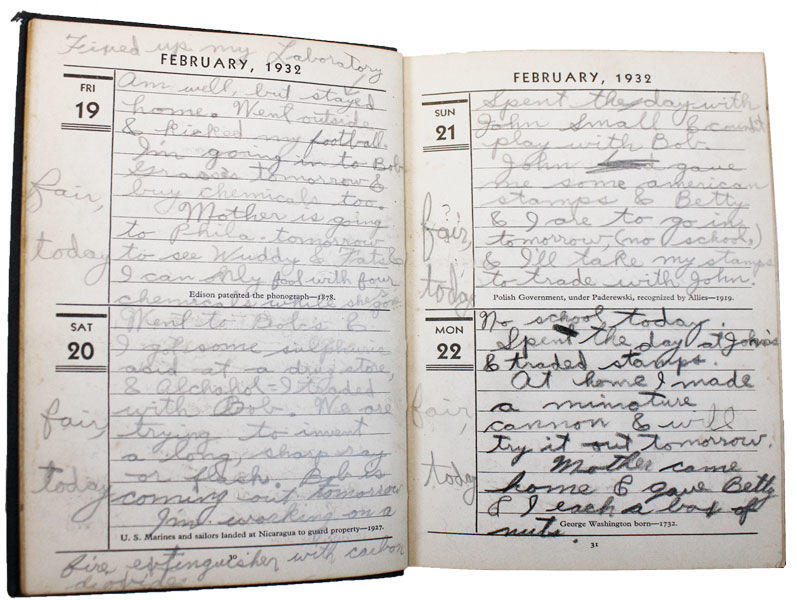 Fixed up my Laboratory
FEBRUARY, 1932
FRI
19
fair,
today
Am well, but stayed
home. Went outside
& kicked my football.
I'm going in to Bob
Grasses tomorrow &
buy chemicals too.
Mother is going
to Phila. tomorrow
to see Wuddy & Fats &
I can only fool with four
chemicals while she's gone
Edison patented the phonograph—1878.
SAT
20
fair,
today
Went to Bob's &
I got some sulphuric
acid at a drug store,
& Alchohol = I traded
with Bob. We are
trying to invent
a long, sharp ray
or flash. Bob is
coming out tomorrow
I'm working on a
U. S. Marines and sailors landed at Nicaragua to guard property—1927.
30
fire extinguisher with carbon
dioxide.
FEBRUARY, 1932
SUN
21
fair,
today
Spent the day with
John Small & couldn't
play with Bob.
John gave
me some american
stamps & Betty
& I are to go in
tomorrow, (no school,)
& I'll take my stamps
to trade with John.
Polish Government, under Paderewski, recognized by Allies—1919.
MON
22
fair,
today
No school today.
Spent the day at John's
& traded stamps.
At home I made
a minature
cannon & will
try it out tomorrow.
Mother came
home & gave Betty
& I each a box of
nuts.
George Washington born—1732.
31